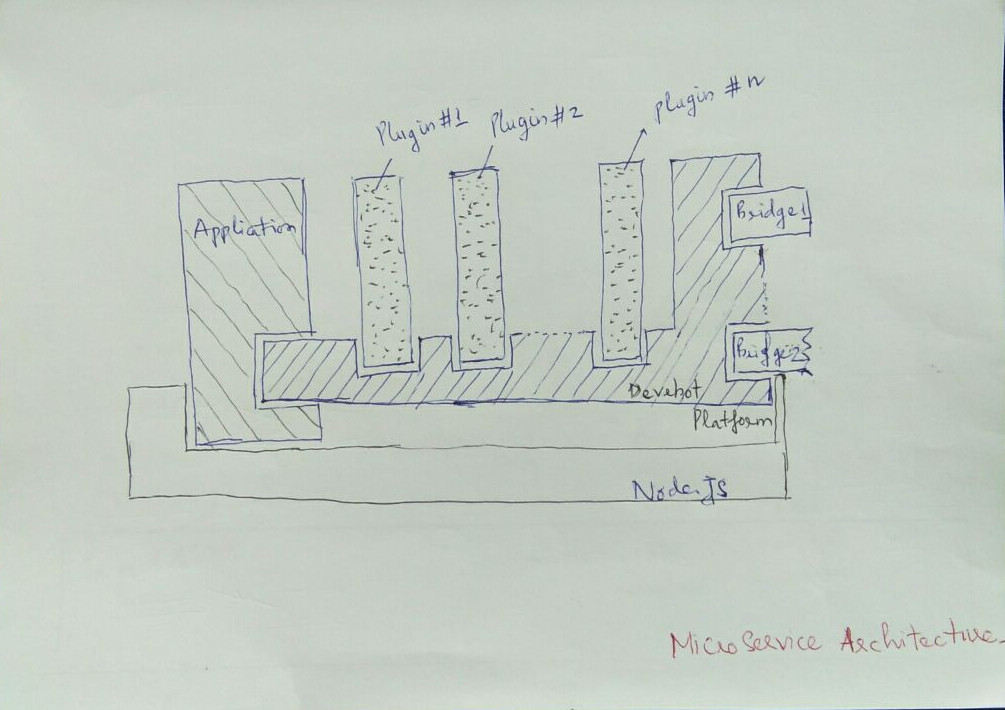 Plugin #1
Plugin #2
plugin #n
Application
Bridge1
Bridge2
Devebot
Platform
Node.JS
MicroService Architecture